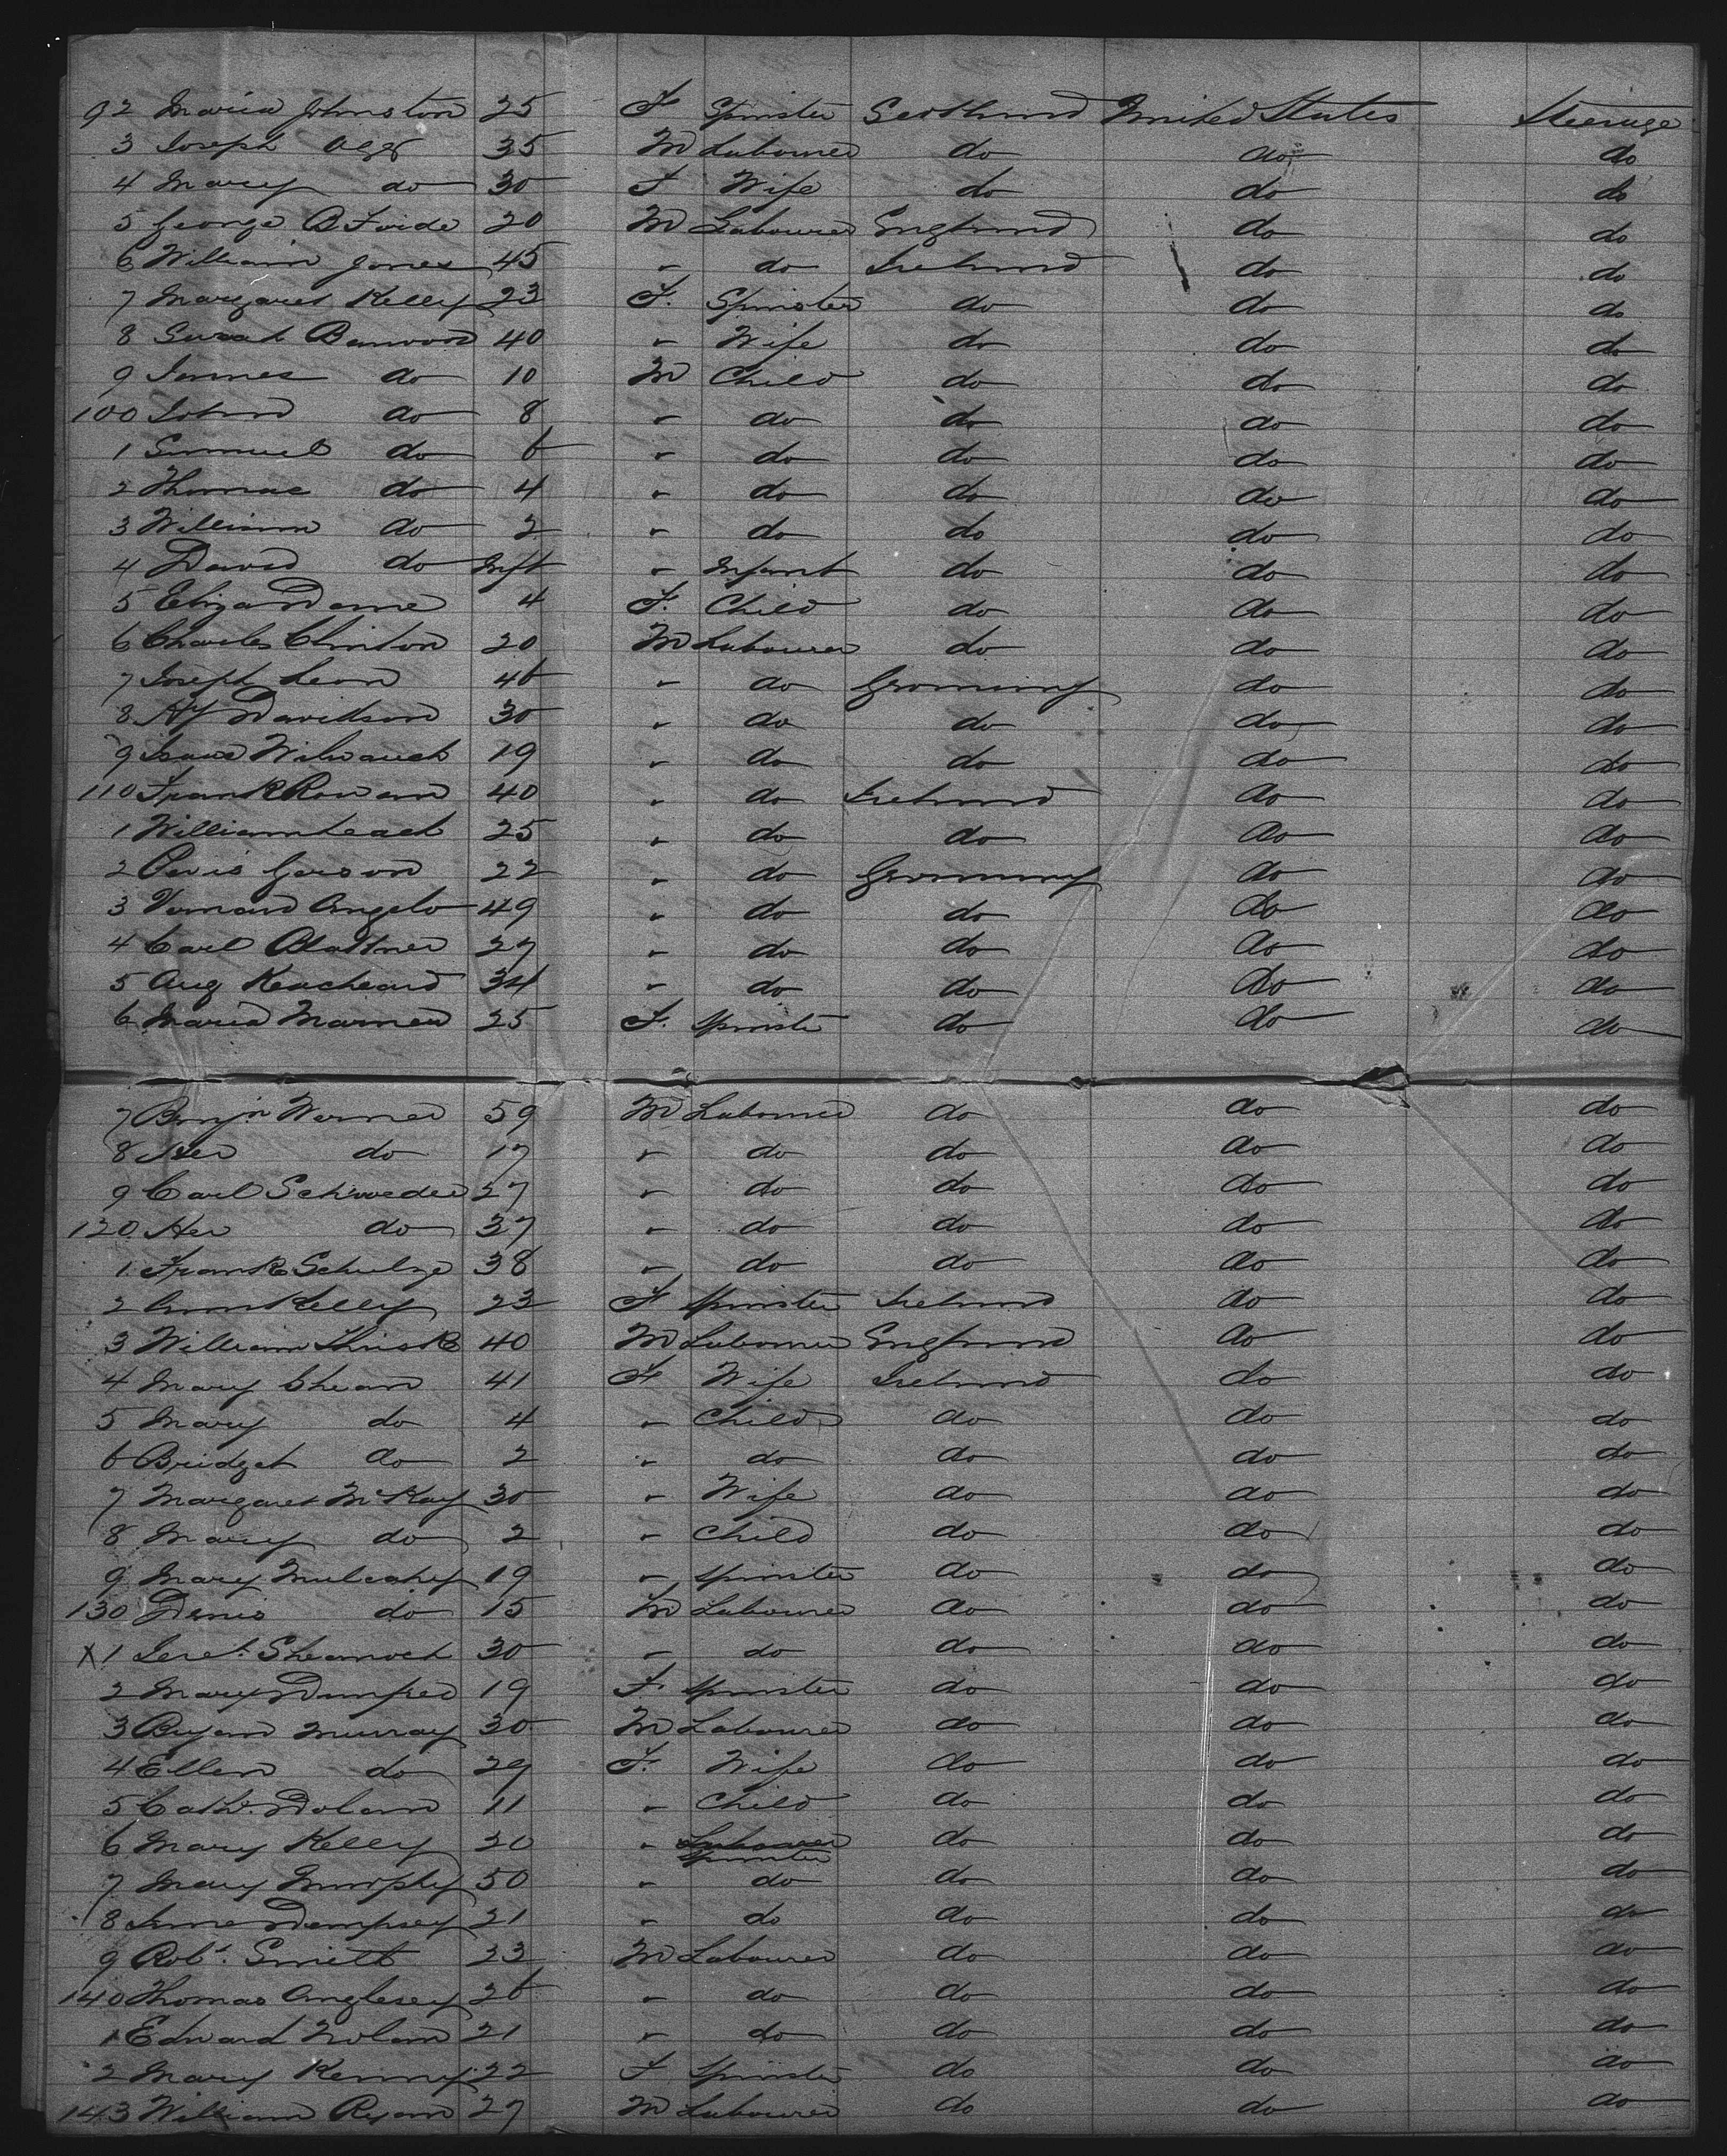 92 Maria Johnston 25 F Spinster Scotland United States Steerage
3 Joseph 35 M Labourer do do do
4 Mary do 30 F Wife do do do
5 George 20 M Labourer England do do
6 William Jones 45 " do Ireland do do
7 Margaret Kelly 23 F. Spinster do do do
8 Sarah 40 " Wife do do do
9 James do 10 M Child do do do
100 John do 8 " do do do do
1 Samuel do 6 " do do do do
2 Thomas do 4 " do do do do
3 William do 2 " do do do do
4 David do Inft " Infant do do do
5 Eliza 4 F. Child do do do
6 Charles Clinton 20 M Labourer do do do
7 Joseph Leon 46 " do Germany do do
8 Hy Davidson 30 " do do do do
9 Isaac 19 " do do do do
110 Frank Rowan 40 " do Ireland do do
1 William Leach 25 " do do do do
2 22 " do Germany do do
3 Angelo 49 " do do do do
4 Carl 27 " do do do do
5 Aug 34 " do do do do
6 Maria 25 F. Spinster do do do
7 Benjn Werner 59 M Labourer do do do
8 Her do 17 " do do do do
9 Carl Schroeder 27 " do do do do
120 Her do 37 " do do do do
1 Frank Schulze 38 " do do do do
2 Ann Kelly 23 F Spinster Ireland do do
3 William 40 M Labourer England do do
4 Mary 41 F Wife Ireland do do
5 Mary do 4 " Child do do do
6 Bridget do 2 " do do do do
7 Margaret McKay 30 " Wife do do do
8 Mary do 2 " Child do do do
9 Mary Mulcahy 19 " Spinster do do do
130 Denis do 15 M Labourer do do do
X 1 30 " do do do do
2 Mary 19 F. Spinster do do do
3 Bryan Murray 30 M Labourer do do do
4 Ellen do 29 F. Wife do do do
5 Cath. Dolan 11 " Child do do do
6 Mary Kelly 20 " Labourer do do do
Spinster
7 Mary Murphy 50 " do do do do
8 Dempsey 21 " do do do do
9 Robt. Smith 23 M Labourer do do do
140 Thomas Anglesey 26 " do do do do
1 Edward Nolan 21 " do do do do
2 Mary Kenny 22 F Spinster do do do
143 William Ryan 27 M Labourer do do do